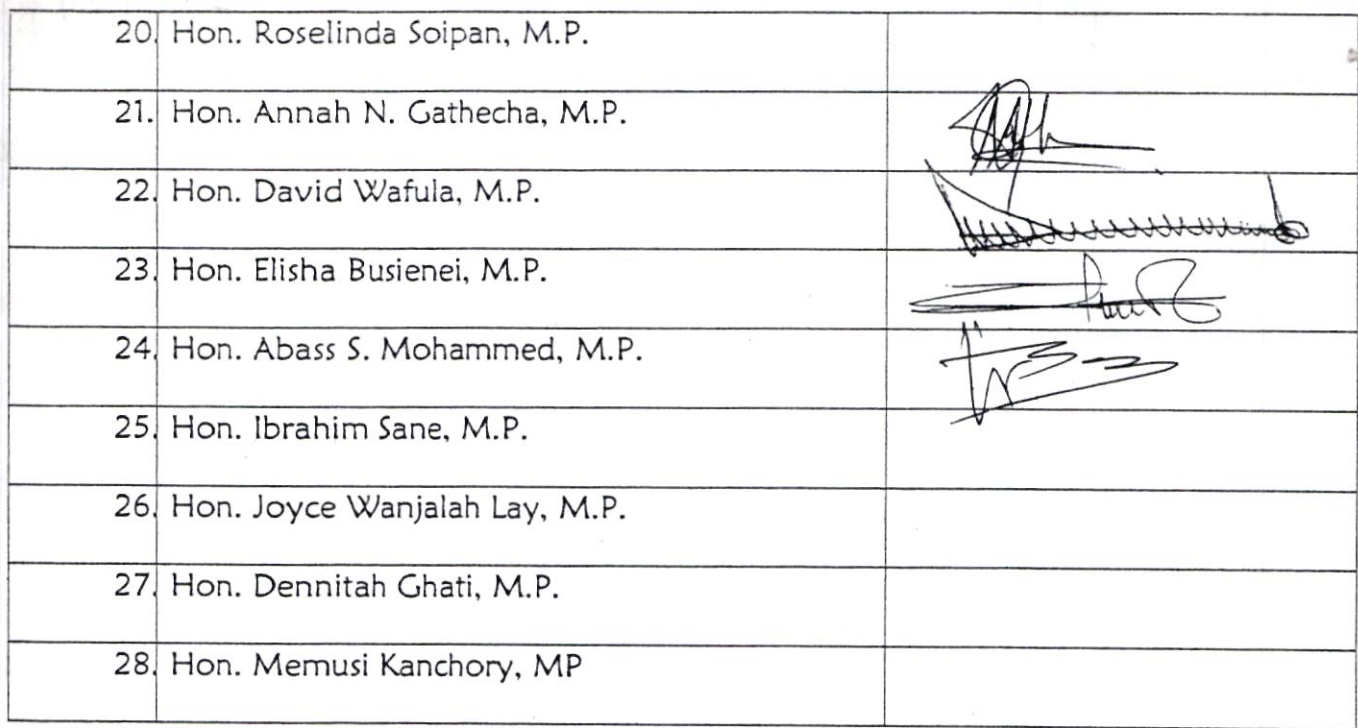 20. Hon. Roselinda Soipan, M.P.
21. Hon. Annah N. Gathecha, M.P.
22. Hon. David Wafula, M.P.
23. Hon. Elisha Busienei, M.P.
24. Hon. Abass S. Mohammed, M.P.
25. Hon. Ibrahim Sane, M.P.
26. Hon. Joyce Wanjalah Lay, M.P.
27. Hon. Dennitah Ghati, M.P.
28. Hon. Memusi Kanchory, MP